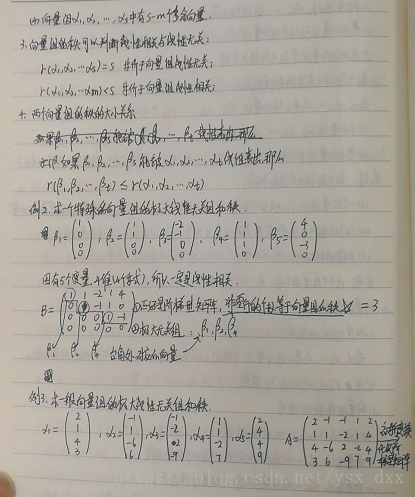 向量组α₁,α₂,…,αₛ中有s-m个多余向量.
3.向量组的秩可以判断线性相关与线性无关:
r(α₁,α₂,…αₛ)=s 等价于向量组线性无关;
r(α₁,α₂,…αₘ)<s 等价于向量组线性相关;
4. 两个向量组的秩的大小关系
如果β₁,β₂,…,βₛ能被α₁,α₂,…,αₜ线性表出,那么
r(β₁,β₂,…,βₜ) ≤ r(α₁,α₂,…,αₜ)
例2.求一个特殊的向量组的极大线性无关组和秩.
β₁=(1 0 0 0), β₂=(1 1 0 0), β₃=(-2 -1 0 0), β₄=(1 1 1 0), β₅=(4 0 -3 0)
因有5个变量,4维(4个方程),所以一定是线性相关.
B=(1 1 -2 1 4
0 1 -1 1 0
0 0 0 1 -3
0 0 0 0 0) ①已是阶梯型矩阵,非零行的行数等于向量组的秩 = 3
②极大无关组: β₁,β₂,β₄
β₁ β₂ β₄ 台角处对应的向量
例3.求一般向量组的极大线性无关组和秩.
α₁=(2 1 4 3), α₂=(-1 1 -6 6), α₃=(-1 -2 2 -9), α₄=(1 1 -2 7), α₅=(2 4 4 9) A=(2 -1 -1 1 2
1 1 -2 1 4
4 -6 2 -2 4
3 6 -9 7 9)
https://blog.csdn.net/ysx_dxx